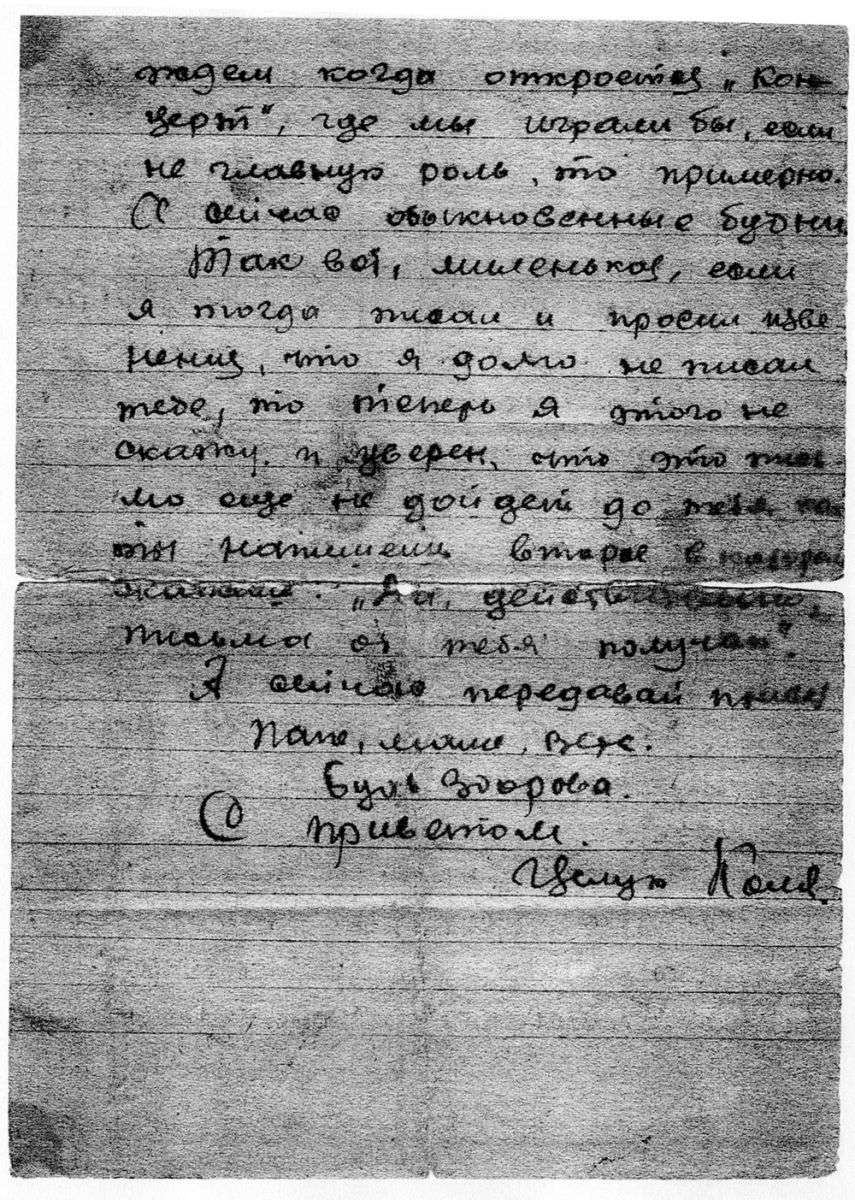 ждем когда откроется „Кон-
церт“, где мы играли бы, если
не главную роль, то примерно.
А сейчас обыкновенные будни
Так вот, миленькая, если
я тогда писал и просил изве
нения, что я долго не писал
тебе, то теперь я этого не
скажу. и уверен, что это пись
мо еще не дойдет до тебя
ты напишешь второе в котором
скажешь: „Да, действительно,
письма от тебя получаю“.
А сейчас передавай привет
папе, маме, Вере.
Будь здорова.
С приветом.
Целую Коля.